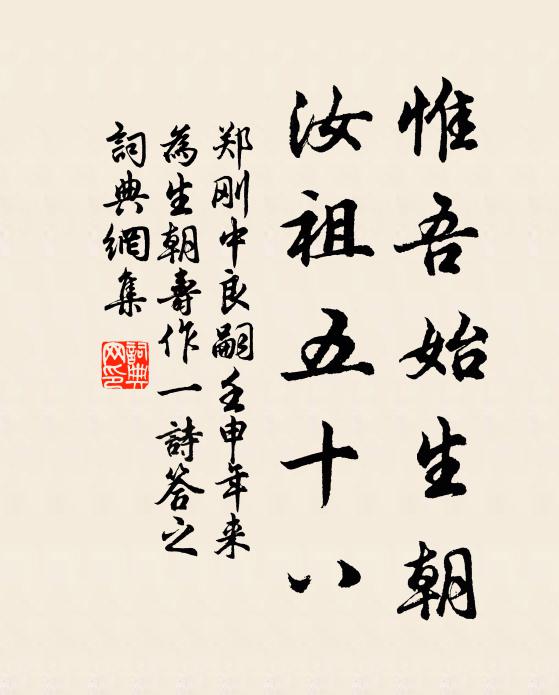 惟吾始生朝
汝祖五十八
郑刚中良嗣壬申年来
為生朝壽作一詩答之
詞典網集
詞典网印